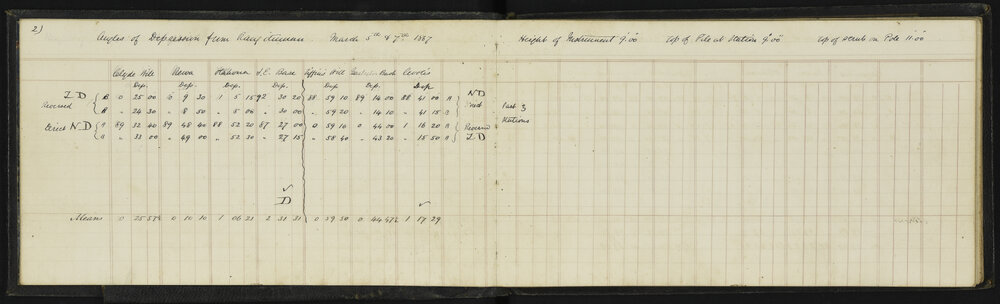 2)
Angles of Depression from Rangitumau March 5th & 7th 1887 Height of Instrument 9.00 Top of Pole at Station 9.00 Top of scrub on Pole 11.00
Clyde Hill Rewa Otahoua S.E. Base Tiffins Hill Bush
Dep. Dep. Dep. Dep. Dep. Dep.
I D B 0 25 00 0 9 30 1 5 15 92 30 20 88 59 10 89 14 00 88 41 00 A N D
Reversed A " 24 30 " 8 50 " 5 00 " 30 00 " 59 20 " 14 10 " 41 15 B Last 3
Direct N D A 89 32 40 89 48 40 88 52 20 87 27 00 0 59 10 0 44 00 1 16 20 B Reversed Stations
B " 33 00 " 49 00 " 52 30 " 27 15 " 58 40 " 43 20 " 15 50 A I D
D
Means 0 25 57½ 0 10 10 1 06 21 2 31 31 0 59 50 0 44 47½ 1 17 29